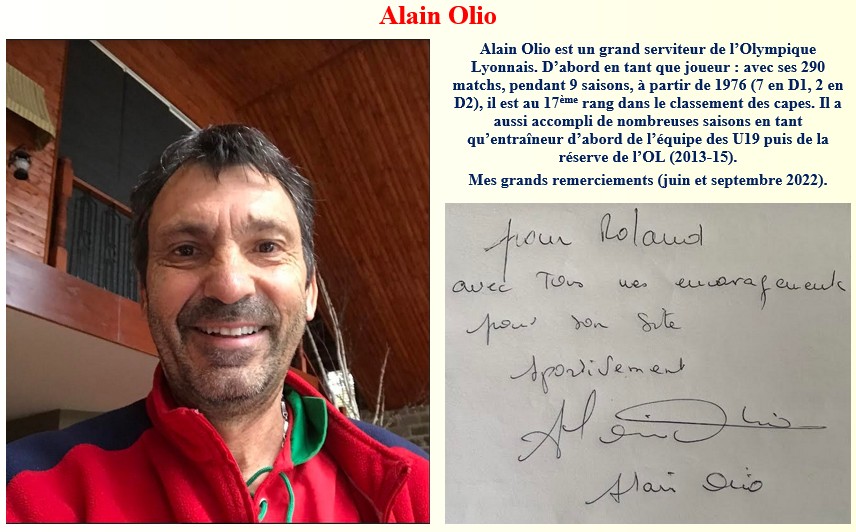 Alain Olio
Alain Olio est un grand serviteur de l’Olympique
Lyonnais. D’abord en tant que joueur : avec ses 290
matchs, pendant 9 saisons, à partir de 1976 (7 en D1, 2 en
D2), il est au 17ème rang dans le classement des capes. Il a
aussi accompli de nombreuses saisons en tant
qu’entraîneur d’abord de l’équipe des U19 puis de la
réserve de l’OL (2013-15).
Mes grands remerciements (juin et septembre 2022).
pour Roland
avec Tous mes encouragements
pour son site
sportivement
Alain Olio
Alain Olio